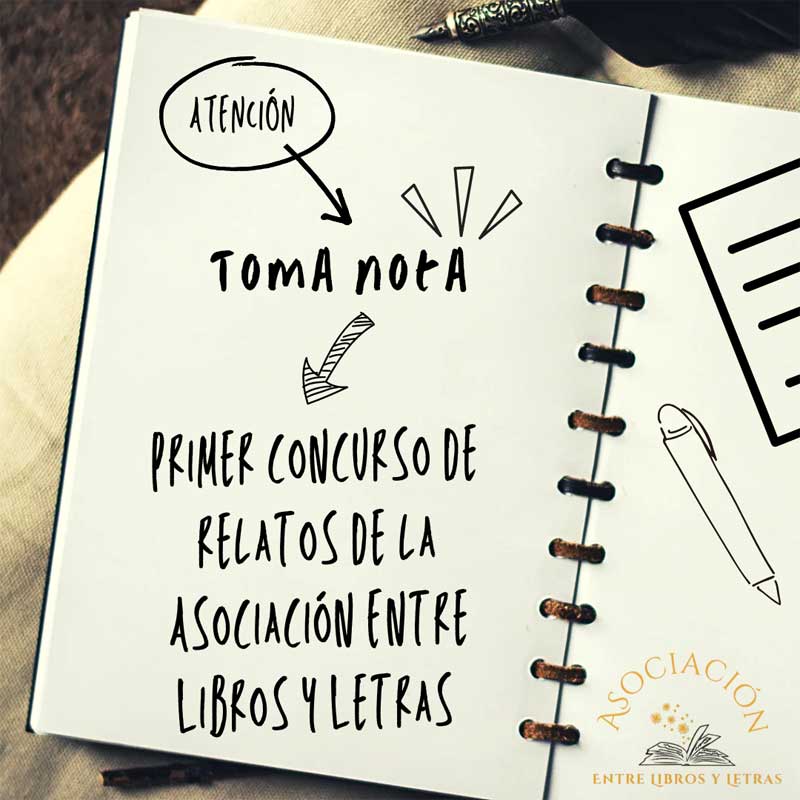 ATENCIÓN
TOMA NOTA
PRIMER CONCURSO DE
RELATOS DE LA
ASOCIACIÓN ENTRE
LIBROS Y LETRAS
ASOCIACIÓN
ENTRE LIBROS Y LETRAS